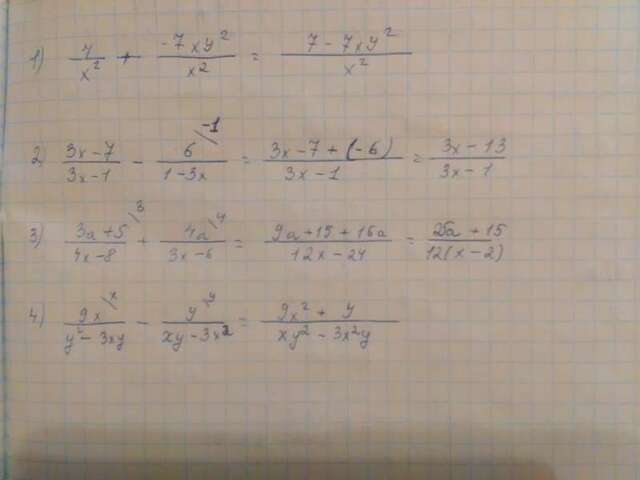 1) 7/x² + -7xy²/x² = 7 - 7xy²/x²
2) 3x-7/3x-1 - 6\-1/1-3x = 3x-7+(-6)/3x-1 = 3x-13/3x-1
3) 3a+5\3/4x-8 + 4a\4/3x-6 = 9a+15+16a/12x-24 = 25a+15/12(x-2)
4) 9x\x/y²-3xy - y\y/xy-3x² = 9x²+y/xy²-3x²y